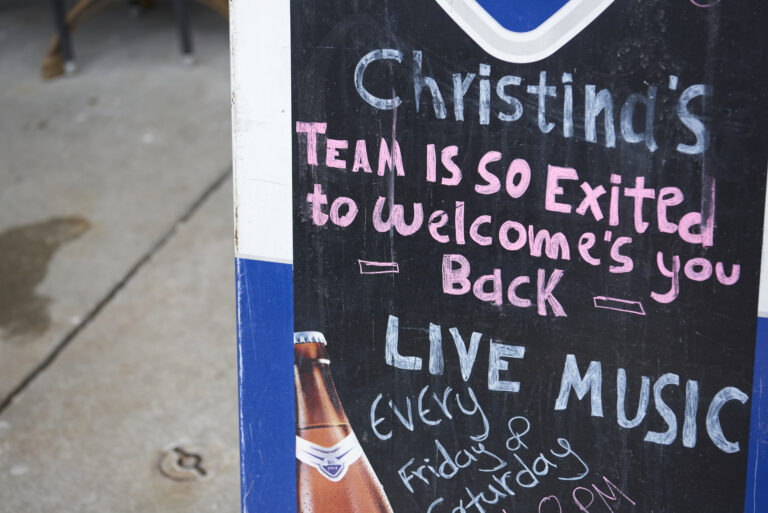 Christina's
TEAM IS SO Exited
to Welcome's you
Back
LIVE MUSIC
EVERY
Friday &
Saturday
PM